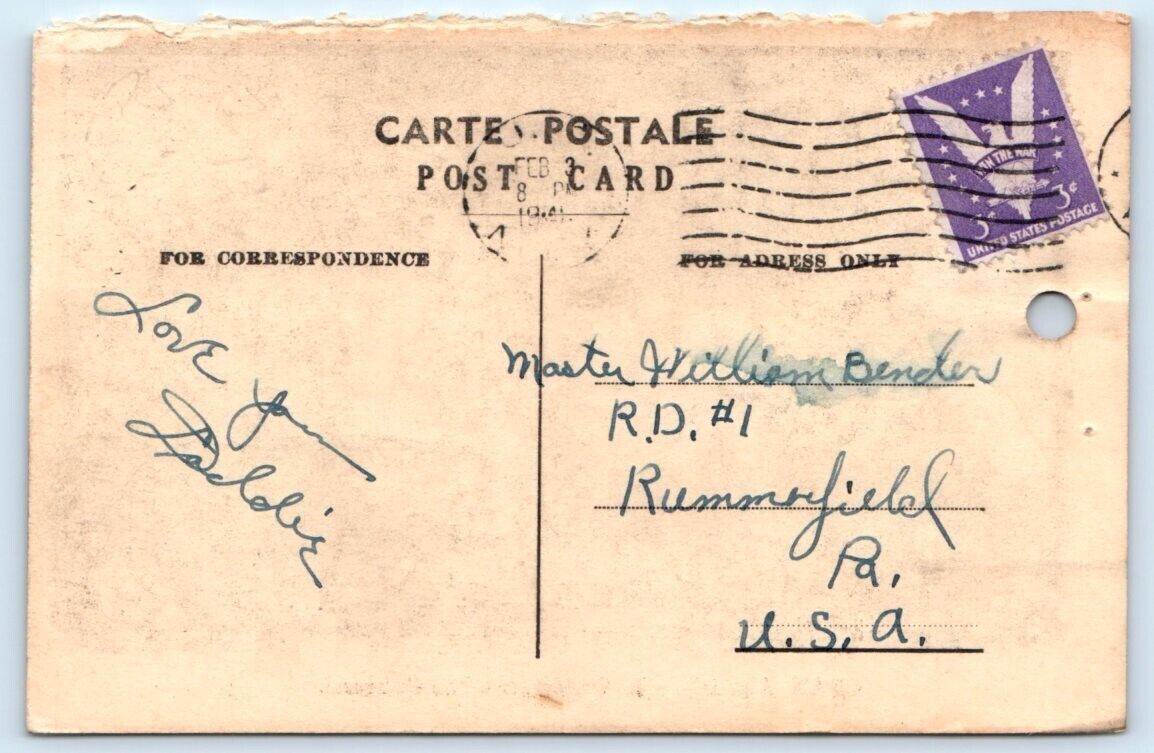 CARTE POSTALE
POST CARD
FEB 3
8 PM
WIN THE WAR
3¢ 3¢
UNITED STATES POSTAGE
FOR CORRESPONDENCE
FOR ADRESS ONLY
Love
Daddie
Master William Bender
R.D. #1
Rummerfield
Pa.
U.S.A.